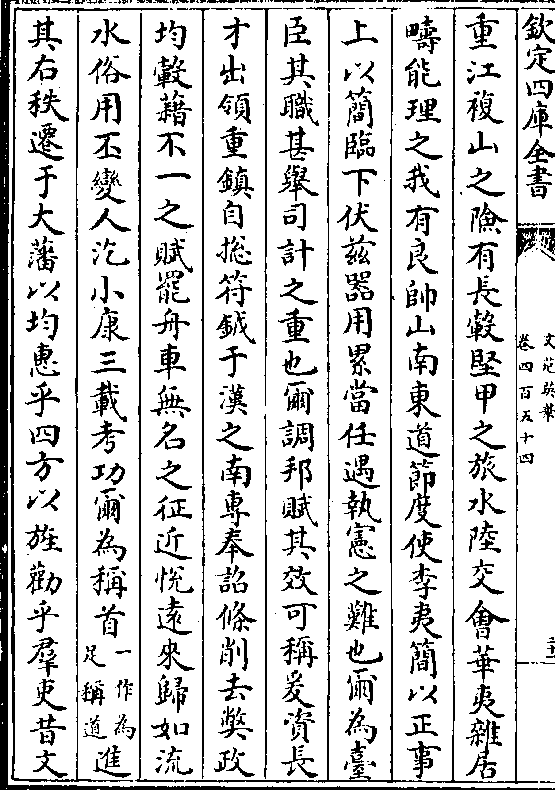 欽定四庫全書
文苑英華
卷四百五十四
重江複山之險有長轂堅甲之旅水陸交會華夷雜居
疇能理之我有良帥山南東道節度使李夷簡以正事
上以簡臨下伏兹器用累當任遇執憲之難也爾為臺
臣其職甚舉司計之重也爾調邦賦其效可稱爰資長
才出領重鎮自揔符鉞于漢之南專奉詔條削去獘政
均輟藉不一之賦罷舟車無名之征近悅遠來歸如流
水俗用丕變人汔小康三載考功爾為稱首一作為足稱道進
其右秩遷于大藩以均惠乎四方以旌勸乎羣吏昔文